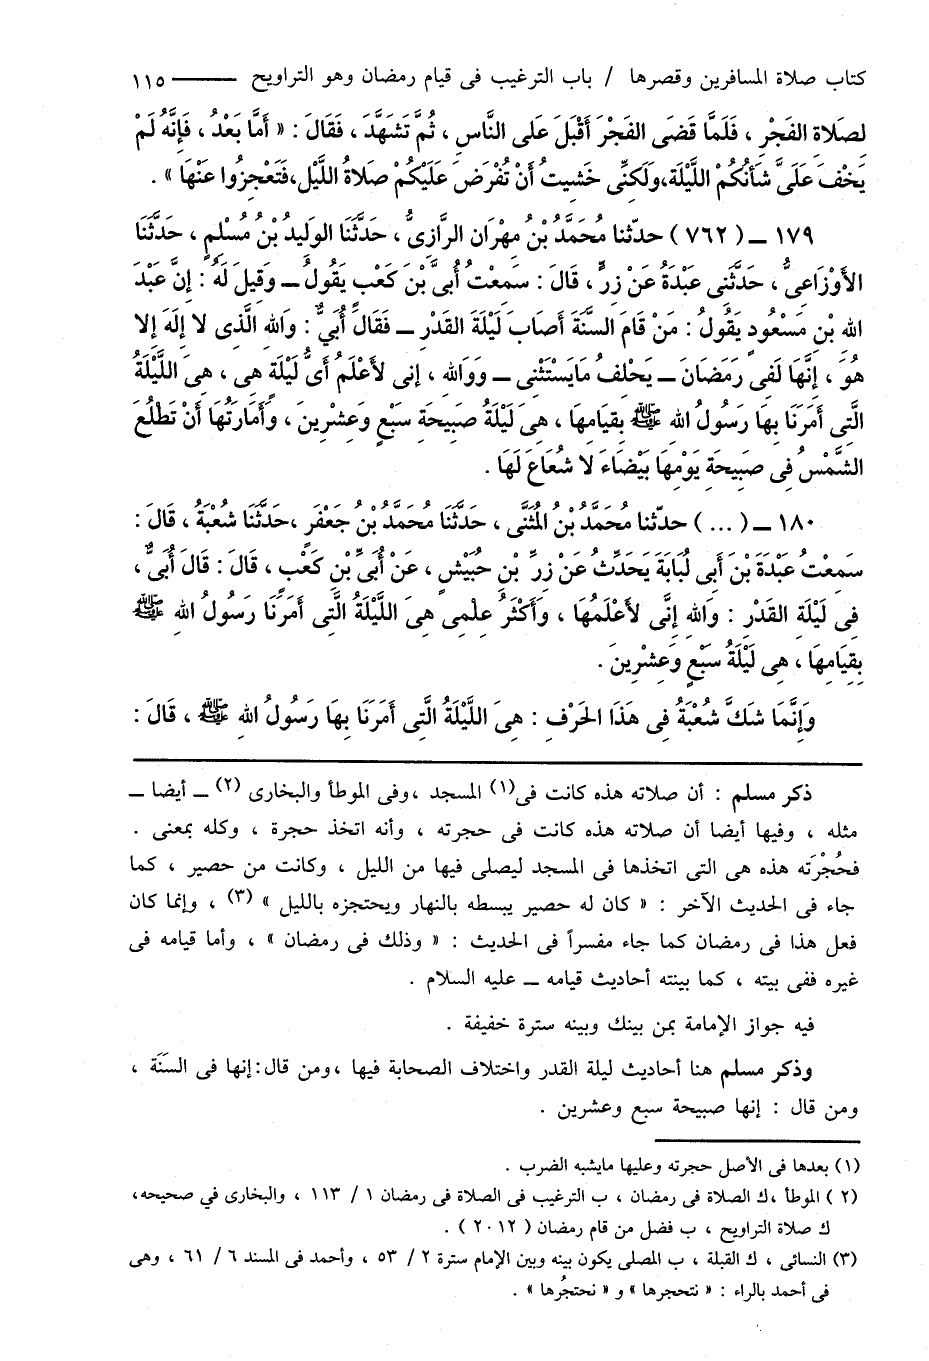 كتاب صلاة المسافرين وقصرها / باب الترغيب فى قيام رمضان وهو التراويح ــــــ ١١٥
لصَلاة الفَجْر ، فَلَمَّا قَضَى الفَجْرَ أَقْبَلَ عَلَى النَّاسِ ، ثُمَّ تَشَهَّدَ ، فَقَالَ : « أَمَّا بَعْدُ ، فَإِنَّهُ لَمْ
يَخْفَ عَلَىَّ شَأنُكُمْ اللَّيْلَةَ،ولَكِنِّى خَشِيتُ أَنْ تُفْرَضَ عَلَيْكُمْ صَلاةُ اللَّيْلِ،فَتَعْجِزُوا عَنْهَا » .
١٧٩ ــ ( ٧٦٢ ) حدّثنا مُحَمَّدُ بْنُ مِهْرَانَ الرَّازِىُّ ، حَدَّثَنَا الوَلِيدُ بْنُ مُسْلِمٍ ، حَدَّثَنَا
الأَوْزَاعِىُّ ، حَدَّثَنِى عَبْدَةُ عَنْ زِرٍّ ، قَالَ : سَمِعْتُ أُبىَّ بْنَ كَعْبٍ يَقُولُ ــ وَقِيلَ لَهُ : إِنَّ عَبْدَ
الله بْنَ مَسْعُودٍ يَقُولُ : مَنْ قَامَ السَّنَةَ أَصَابَ لَيْلَةَ القَدْرِ ــ فَقَالَ أُبىٌّ : وَالله الَّذى لا إِلَهَ إِلا
هُوَ ، إِنَّهَا لَفِى رَمَضَانَ ــ يَحْلفُ مَايَسْتَثْنِى ــ وَوَالله ، إِنى لأَعْلَمُ أَىُّ لَيْلَةٍ هِى ، هِىَ اللَّيْلَةُ
الَّتِى أَمَرَنَا بِهَا رَسُولُ الله ﷺ بِقِيَامِهَا ، هِىَ لَيْلَةُ صَبِيحَةِ سَبْعٍ وَعِشْرِينَ ، وَأَمَارَتُهَا أَنْ تَطْلُعَ
الشَّمْسُ فِى صَبِيحَةِ يَوْمِهَا بَيْضَاءَ لا شُعَاعَ لَهَا .
١٨٠ ــ ( ... ) حدّثنا مُحَمَّدُ بْنُ المُثَنَّى ، حَدَّثَنَا مُحَمَّدُ بْنُ جَعْفَرٍ ،حَدَّثَنَا شُعْبَةُ ، قَالَ :
سَمِعْتُ عَبْدَةَ بْنَ أَبِى لُبَابَةَ يُحَدِّثُ عَنْ زِرِّ بْنِ حُبَيْشٍ ، عَنْ أُبَىِّ بْنِ كَعْبٍ ، قَالَ : قَالَ أُبىٌّ ،
فِى لَيْلَةِ القَدْرِ : وَالله إِنِّى لأَعْلَمُهَا ، وَأَكْثَرُ عِلْمِى هِىَ اللَّيْلَةُ الَّتِى أَمَرَنَا رَسُولُ الله ﷺ
بِقِيَامِهَا ، هِى لَيْلَةُ سَبْعٍ وَعِشْرِينَ .
وَإِنَّمَا شَكَّ شُعْبَةُ فِى هَذَا الحَرْفِ : هِىَ اللَّيْلَةُ الَّتِى أَمَرَنَا بِهَا رَسُولُ الله ﷺ ، قَالَ :
ذكر مسلم : أن صلاته هذه كانت فى(١) المسجد ،وفى الموطأ والبخارى (٢) ــ أيضا ــ
مثله ، وفيها أيضا أن صلاته هذه كانت فى حجرته ، وأنه اتخذ حجرة ، وكله بمعنى .
فحُجْرَته هذه هى التى اتخذها فى المسجد ليصلى فيها من الليل ، وكانت من حصير ، كما
جاء فى الحديث الآخر : « كان له حصير يبسطه بالنهار ويحتجزه بالليل » (٣) ، وإنما كان
فعل هذا فى رمضان كما جاء مفسراً فى الحديث : « وذلك فى رمضان » ، وأما قيامه فى
غيره ففى بيته ، كما بينته أحاديث قيامه ــ عليه السلام .
فيه جواز الإمامة بمن بينك وبينه سترة خفيفة .
وذكر مسلم هنا أحاديث ليلة القدر واختلاف الصحابة فيها ،ومن قال:إنها فى السنَة ،
ومن قال : إنها صبيحة سبع وعشرين .
(١) بعدها فى الأصل حجرته وعليها مايشبه الضرب .
(٢) الموطأ ،ك الصلاة فى رمضان ، ب الترغيب فى الصلاة فى رمضان ١ / ١١٣ ، والبخارى في صحيحه،
ك صلاة التراويح ، ب فضل من قام رمضان ( ٢٠١٢ ) .
(٣) النسائى ، ك القبلة ، ب المصلى يكون بينه وبين الإمام سترة ٢ / ٥٣ ، وأحمد فى المسند ٦ / ٦١ ، وهى
فى أحمد بالراء : « نتحجرها » و « نحتجُرها » .